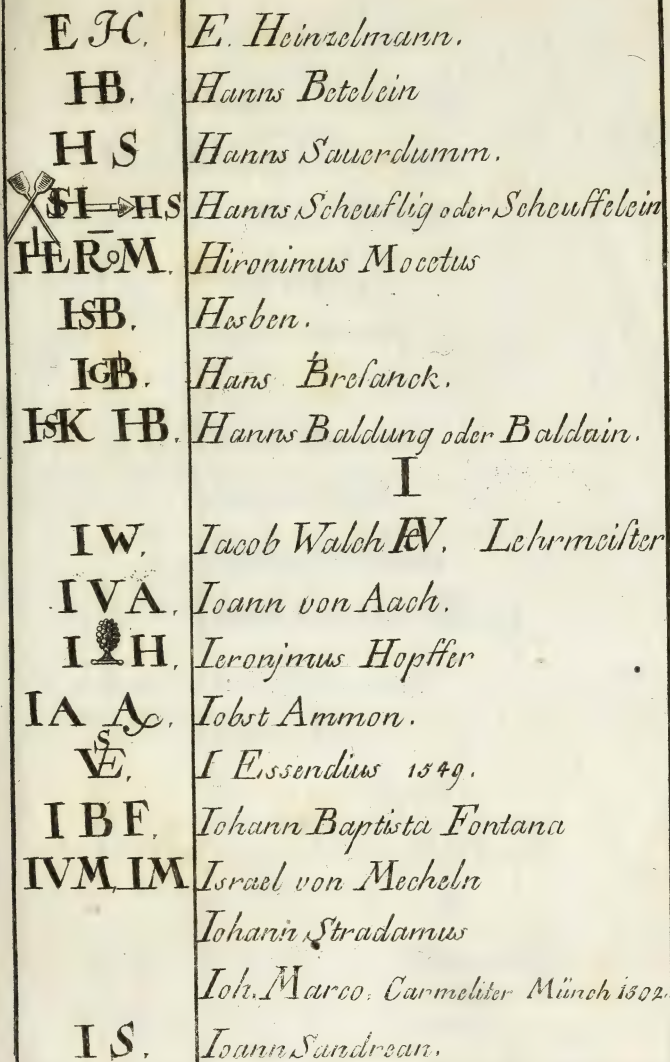 E H. E. Heinzelmann.
HB. Hanns Betelein
H S Hanns Sauerdumm.
SH HS Hanns Scheuflig oder Scheuffelein
HERoM. Hironimus Mocetus
HSB. Hesben.
IGB. Hans Bresanck.
HSK HB. Hanns Baldung oder Baldain.
I
I W. Iacob Walch . Lehrmeister
IVA. Ioann von Aach.
I H. Ieronjmus Hopffer
IA A. Iobst Ammon.
SVE. I Essendius 1549.
I B F. Iohann Baptista Fontana
IVM IM Israel von Mecheln
Iohann Stradamus
Ioh. Marco. Carmeliter Münch 1302.
I S. Ioann Sandrean.